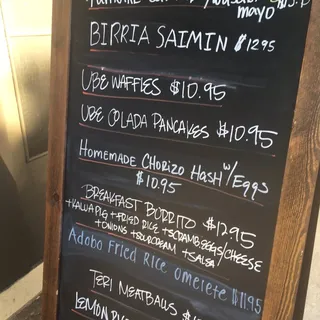 mayo
BIRRIA SAIMIN $12.95
UBE WAFFLES $10.95
UBE COLADA PANCAKES $10.95
HOMEMADE CHORIZO HASH W/ EGGS
$10.95
BREAKFAST BURRITO $12.95
+KALUA PIG +FRIED RICE +SCRAMB EGGS/CHEESE
+ONIONS +SOURCREAM +SALSA
Adobo FRied Rice omelete $11.95
TERI MEATBALLS
LEMON